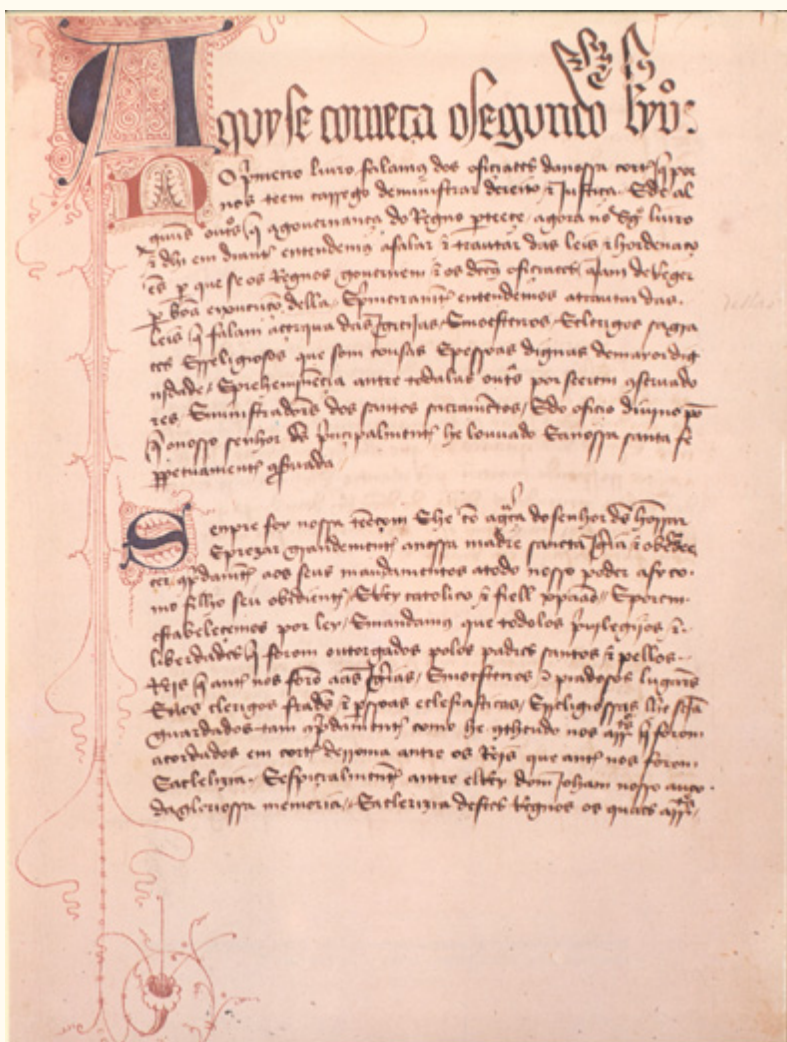 Aquy se começa o segundo livro:
No primeiro livro falamos dos oficiaaes da nossa corte que por
nos teem carrego de ministrar dereito e justiça. E de al
guũs outros que a governança do Regno perteece, agora neste livro
e dhi em diante entendemos a falar e trautar das leis e hordenaço
ẽs per que se os Regnos governem e os dictos oficiaaes ajam de Reger
per boa eixecuçom dellas. E primeiramente entendemos a trautar das
leis que falam açerqua das Igreijas, E moesteiros, E clerigos sagra
ees E Religiosos que som cousas E pessoas dignas de mayor dig
nidade, E preheminẽcia antre todalas outras por seerem
res, E ministradores dos santos sacramẽtos, E do oficio divino per
que o nosso senhor deus principalmente he louvado E a nossa santa fe
perpetuamente
Senpre foy nossa teẽçom E he cõ a graça do senhor deus honrrar
E prezar grandemente a nossa madre sancta Igreja e obedee
cer aos seus mandamentos a todo nosso poder asy co
mo filho seu obediente, E Rey catolico e fiell E porem
estabeleçemos por ley, E mandamos que todolos privilegios, e
liberdades que forom outorgados polos padres santos e pellos
Reis que ante nos forom aas Igrejas, E moesteiros e piadosos lugares
E aos clerigos frades e pessoas eclesiasticas, E Religiossas lhe sejã
guardados tam como he contheudo nos artigos que forom
acordados em corte de Roma antre os Reis que ante nos forom
E a clelizia. E espicialmente antre elRey dom Joham nosso avoo
da gloriossa memoria, E a clerizia destes Regnos os quaes artigos